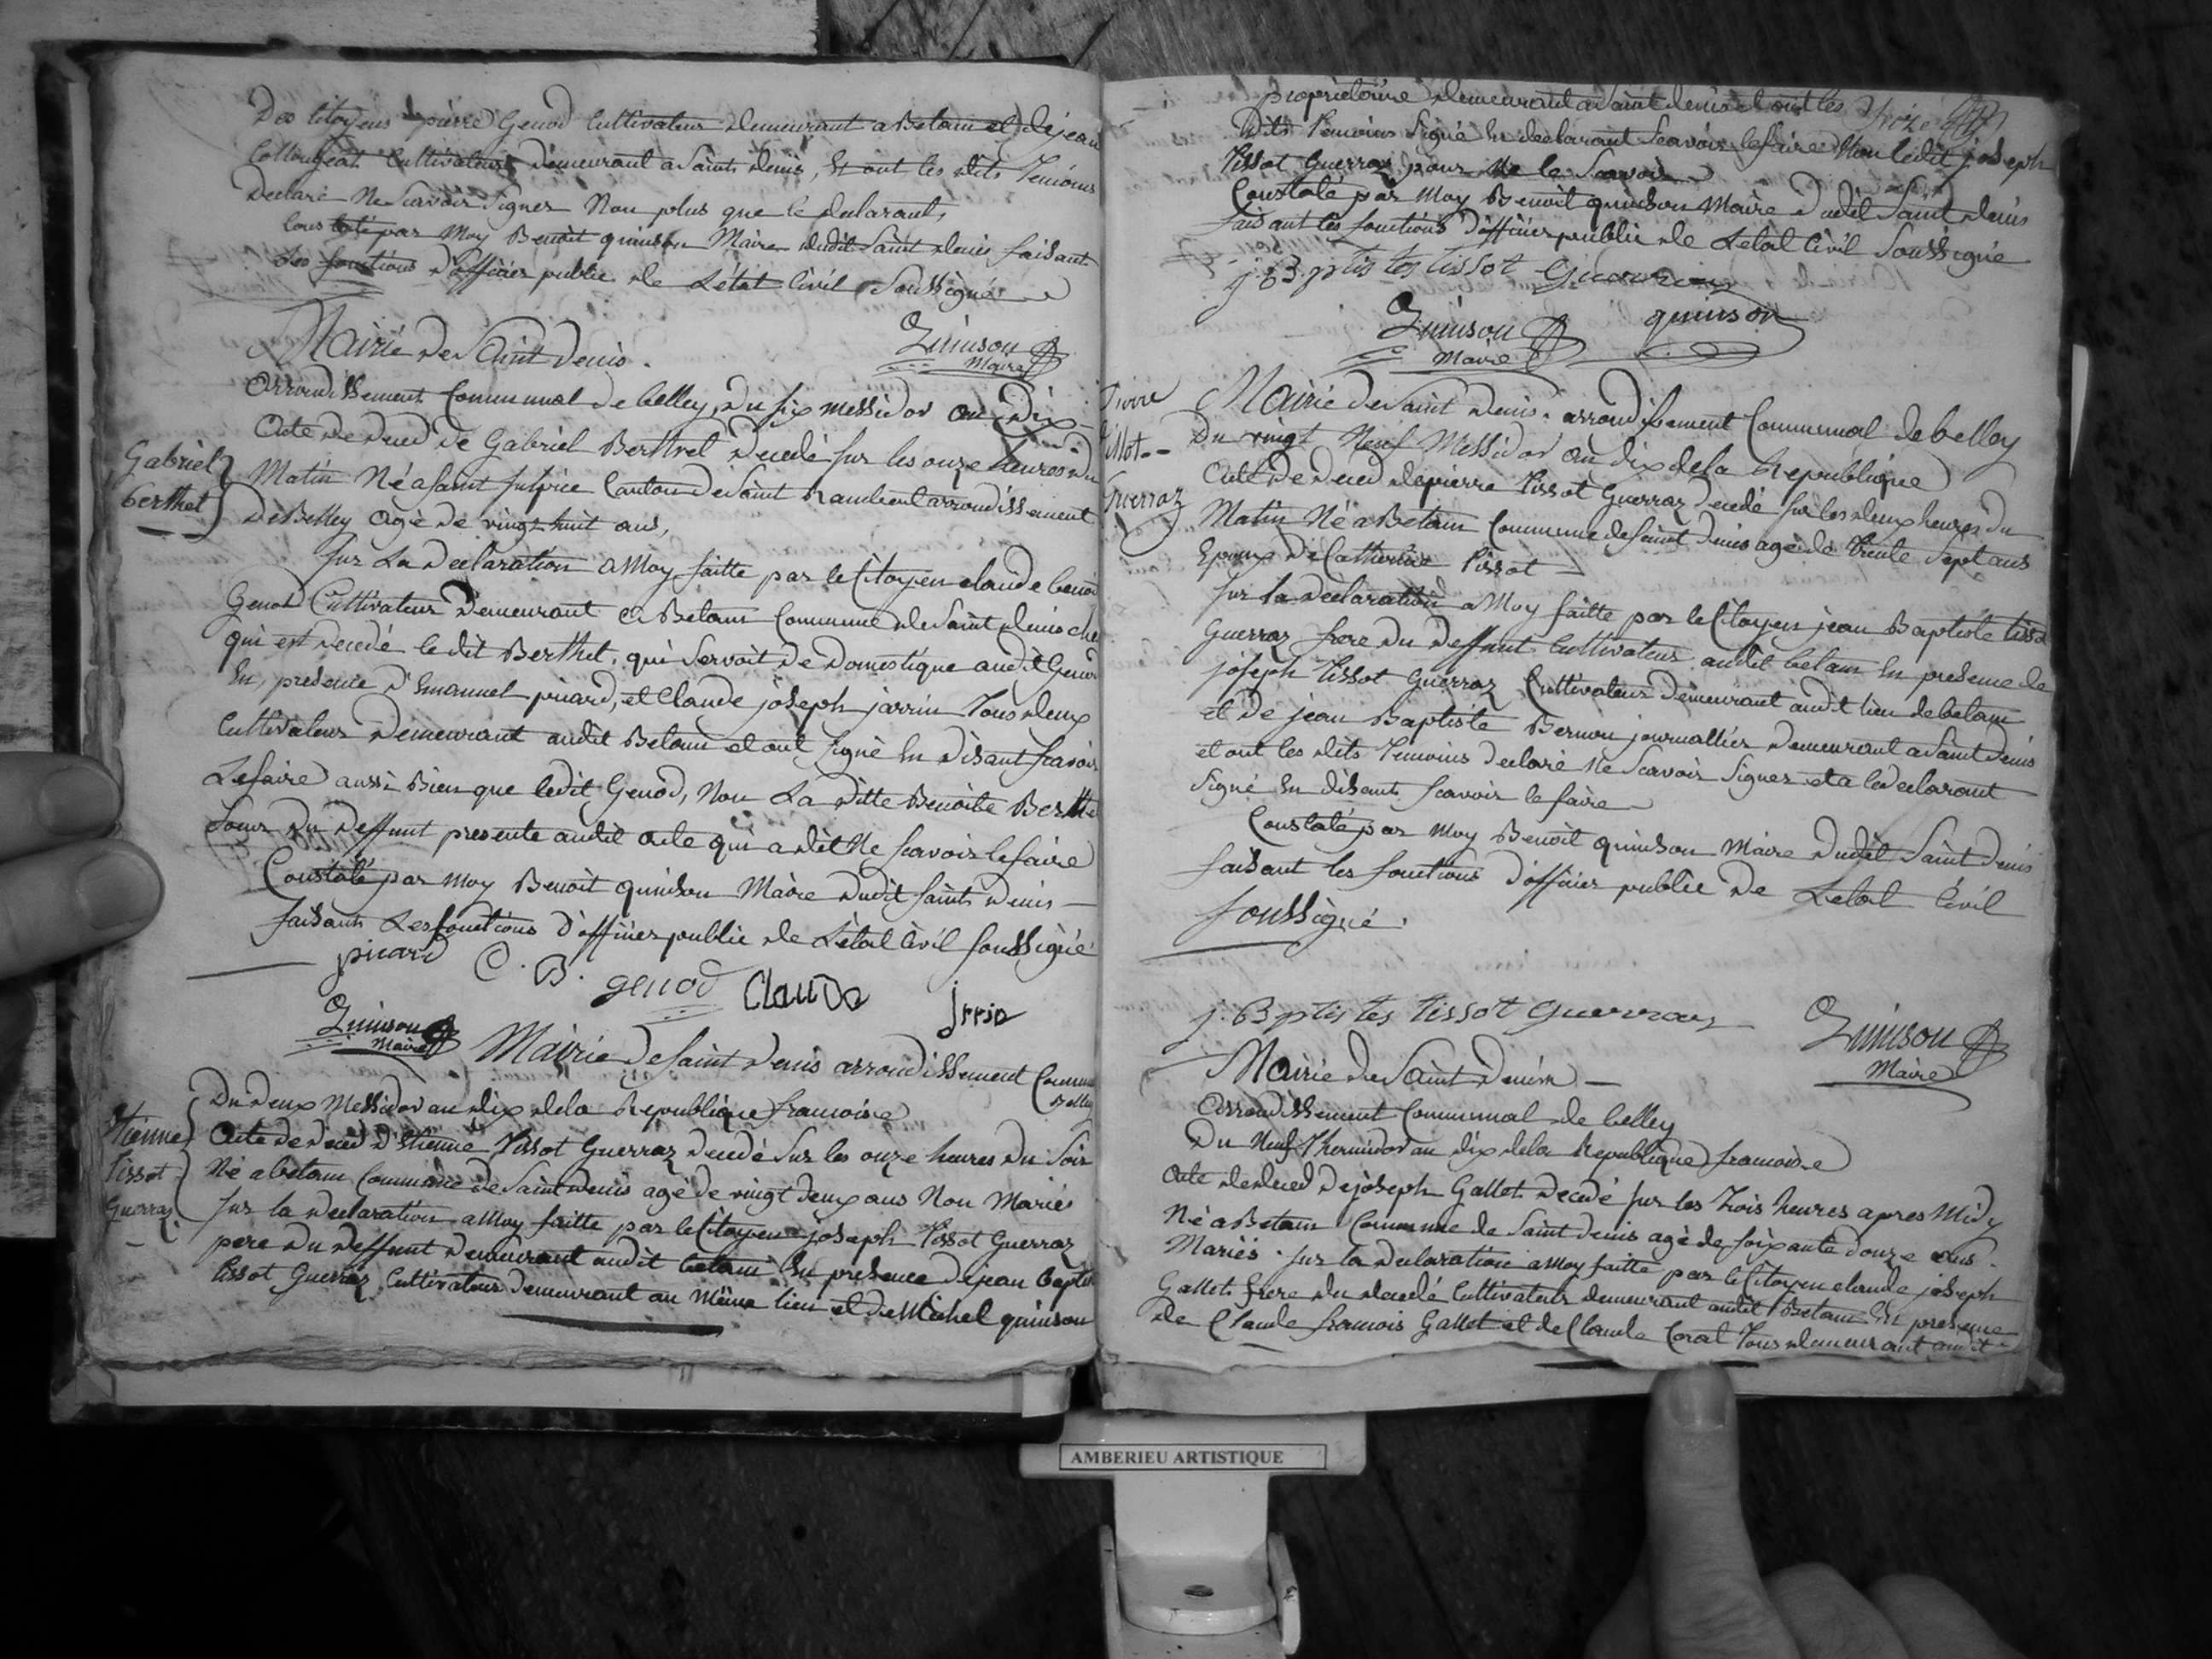 Des Citoyens pierre Genod Cultivateur demeurant a Betam et de jean
Collougeat Cultivateur demeurant a Saint denis, Et ont les dits Temoins
declaré Ne Scavoir Signer Non plus que le declarant,
Constaté par Moy Benoit quinson Maire dudit Saint denis faisant
Les fonctions d'officier public de L'état Civil Soussigné
Quinson
Maire
Mairie de Saint denis.
Arrondissement Communal de belley, du six messidor an dix
Gabriel
berthet
Acte de deced de Gabriel Berthet decedé sur les onze heures du
Matin Né a saint sulpice Canton de Saint Rambert arrondissement
de Belley Agé de vingt huit ans,
sur La declaration a Moy faitte par le Citoyen claude benoit
Genod Cultivateur demeurant a Betam Commune de Saint denis chez
qui est decedé le dit Berthet, qui Servoit de domestique audit Genod
En presence d'Emanuel picard, et Claude joseph jarrin Tous deux
Cultivateurs demeurant audit Betam et ont Signé En disant scavoir
Le faire aussi Bien que ledit Genod, Non La ditte Benoite Berthet
soeur du deffunt presente audit acte qui a dit Ne scavoir le faire
Constaté par Moy Benoit quinson Maire dudit saint denis
faisant Les fonctions d'officier public de L'état Civil soussigné
picard C. B. genod Claude jrrin
Quinson
Maire
Mairie de saint denis arrondissement Communal
Belley
Du deux Messidor an dix de la Republique francoise
Etienne
Tissot
Guerraz
Acte de deced d'Etienne Tissot Guerraz decedé Sur les onze heures du Soir
Né a betam Commune de Saint denis agé de vingt deux ans Non Mariés
sur la declaration a Moy faitte par le Citoyen joseph Tissot Guerraz
pere du deffunt demeurant audit betam En presence de jean baptiste
tissot Guerraz Cultivateur demeurant au Même lieu et de Michel quinson
proprietaire demeurant a Saint denis et ont les
dits Temoins Signé En declarant Scavoir le faire Non ledit joseph
Tissot Guerraz pour Ne le Scavoir
Constaté par Moy Benoit quinson Maire dudit Saint denis
faisant les fonctions d'officier public de L'etat Civil Soussigné
j. B. ptis tes tissot Guerraz
Quinson quinson
Maire
Pierre
tissot
Guerraz
Mairie de Saint denis. arrondissement Communal de belley
Du vingt Neuf Messidor an dix de la Republique
Acte de deced de pierre Tissot Guerraz decedé sur les deux heures du
Matin Né a Betam Commune de saint denis agé de Trente Sept ans
Epoux de Catherine Pissot
sur la declaration a Moy faitte par le Citoyen jean Baptiste tissot
Guerraz frere du deffunt Cultivateur audit betam En presence de
joseph Tissot Guerraz Cultivateur demeurant audit lieu de betam
et de jean Baptiste Bernou journallier demeurant a Saint denis
et ont les dits Temoins declaré Ne Scavoir Signer et a le declarant
Signé En disant scavoir le faire
Constaté par Moy Benoit quinson Maire dudit Saint denis
faisant les fonctions d'officier public de L'etat Civil
soussigné.
j. B ptis tes tissot guerraz
Quinson
Maire
Mairie de Saint denis
Arrondissement Communal de belley
Du Neuf Thermidor an dix de la Republique francoise
Acte de deced de joseph Gallet decedé sur les Trois heures apres Midy
Né a Betam Commune de Saint denis agé de soixante douze ans.
Mariés. sur la declaration a Moy faitte par le Citoyen claude joseph
Gallet frere du decedé Cultivateur demeurant audit Betam En presence
de Claude francois Gallet et de Claude Corat Tous demeurant audit
AMBERIEU ARTISTIQUE